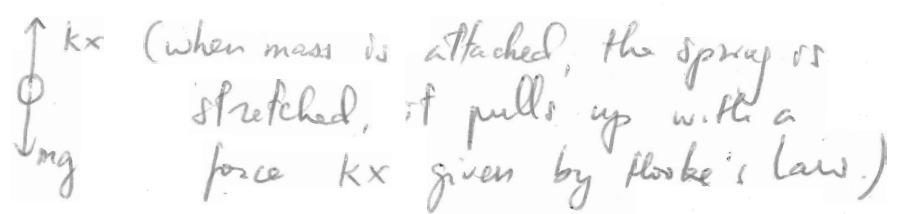 kx (when mass is attached, the spring is
stretched, it pulls up with a
mg force kx given by Hooke's law.)